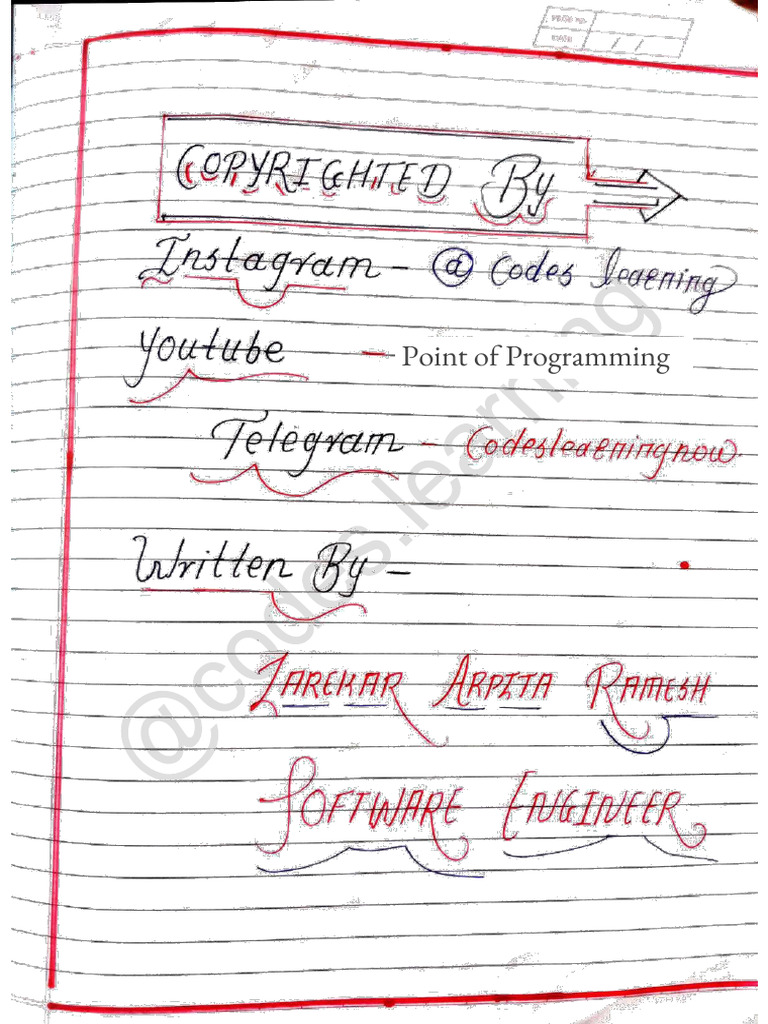 PAGE NO.
DATE / /
COPYRIGHTED By
Instagram - @ Codes learning
Youtube - Point of Programming
Telegram - Codeslearningnow
Written By -
ZAREKAR ARPITA RAMESH
SOFTWARE ENGINEER
@codes.learning